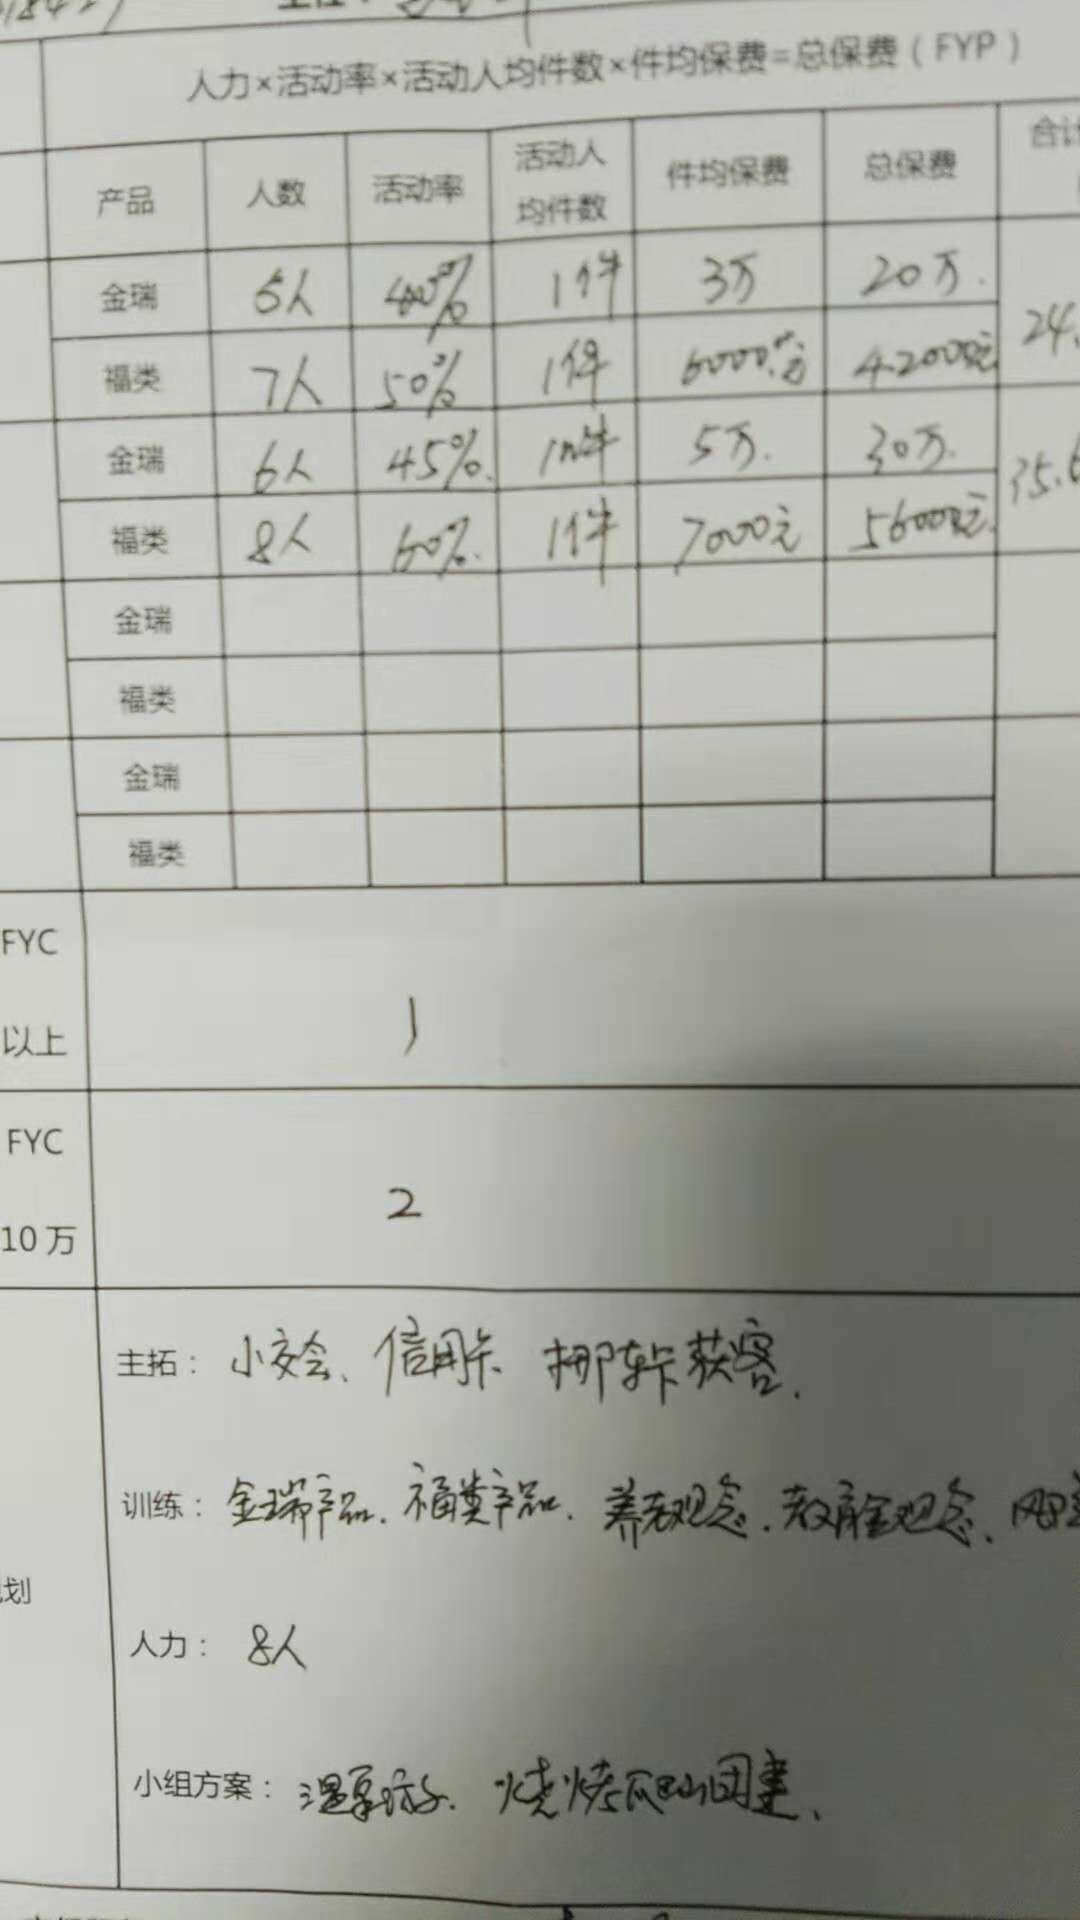 人力×活动率×活动人均件数×件均保费=总保费（FYP）
产品 人数 活动率 活动人均件数 件均保费 总保费 合计
金瑞 40% 1件 3万 20万.
福类 7人 50% 1件 6000元 42000元
24.
金瑞 6人 45%. 1件 5万. 30万.
福类 8人 60%. 1件 7000元 56000元
35.6
金瑞
福类
金瑞
福类
FYC
以上
1
FYC
10万
2
主拓：小交会、信用卡 挪车卡获客、
训练：金瑞产品、福类产品、养老观念、教育金观念、
划
人力：8人
小组方案：温泉游、烧烤爬山团建、